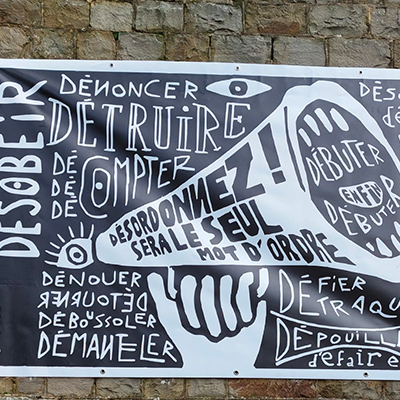 DÉSOBÉIR
DÉNONCER
DÉTRUIRE
DÉ
DÉ COMPTER
DÉ
DÉSORDONNEZ !
SERA LE SEUL
MOT D'ORDRE
DÉBUTER
ENFIN
DÉBUTER
DÉNOUER
DÉTOURNER
DÉBOUSSOLER
DÉMANTELER
DÉFIER
DÉTRAQU
DÉPOUILLE
défaire